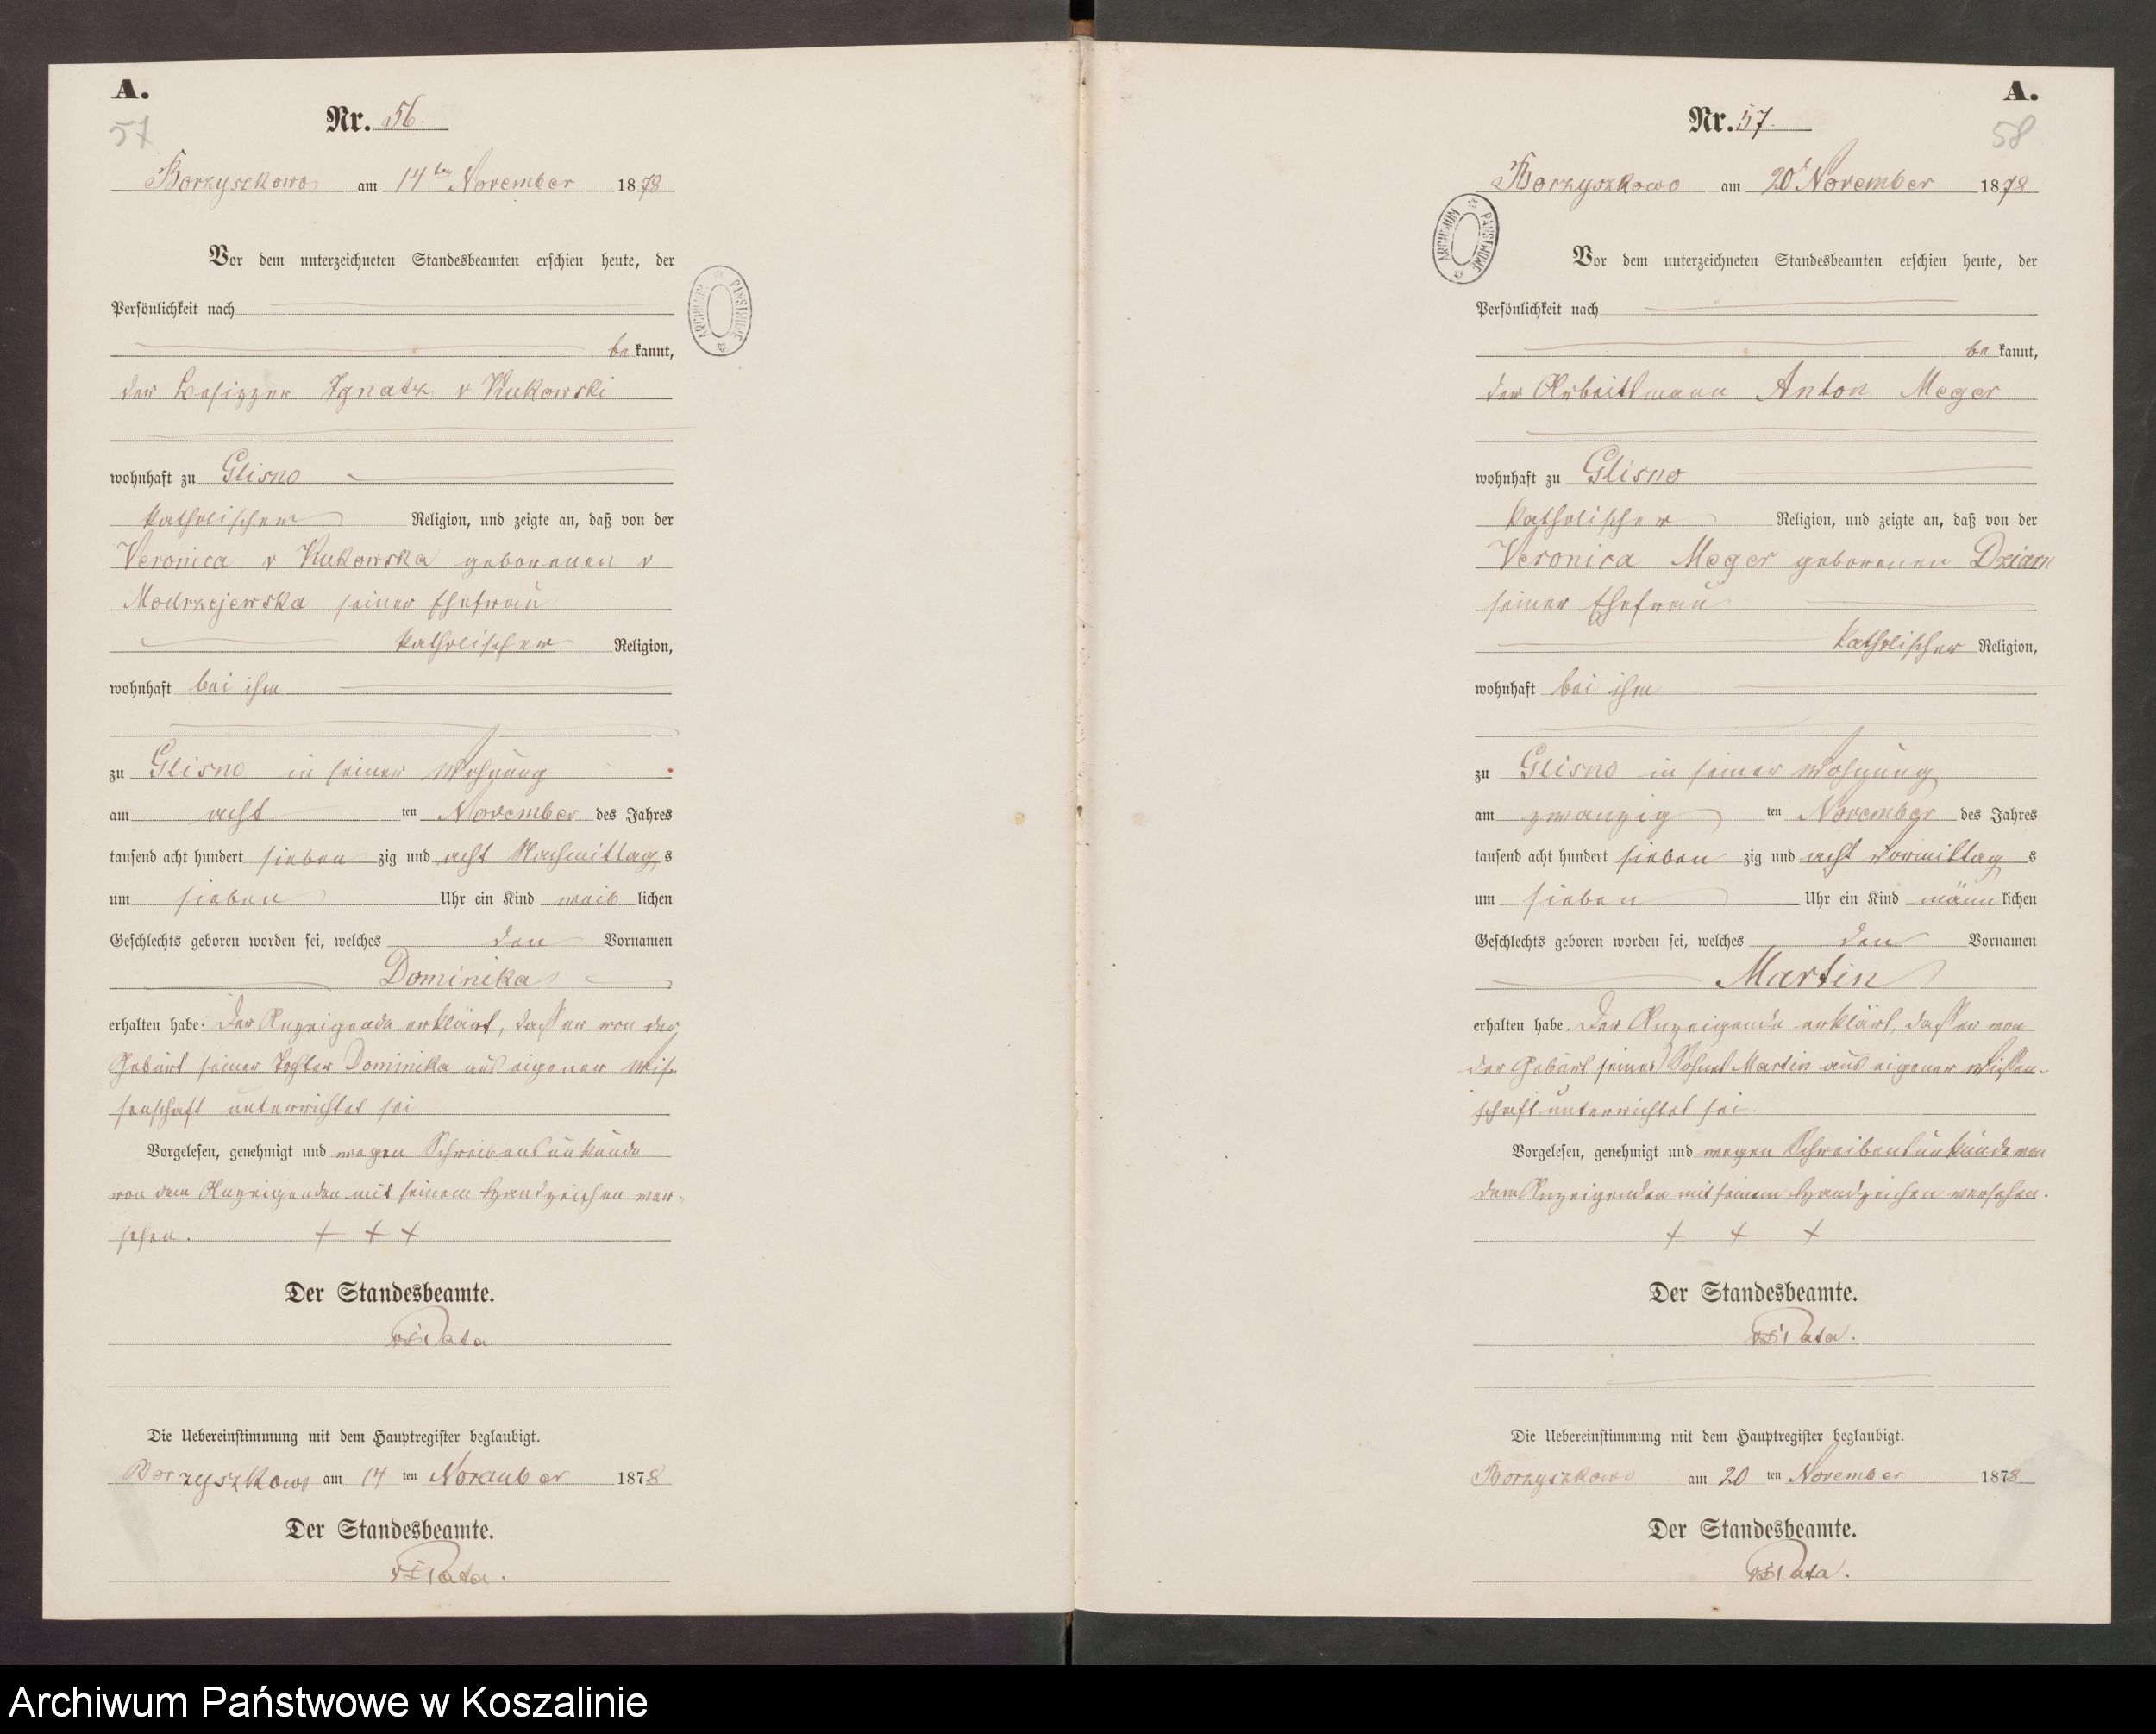 A.
57
Nr. 56.
Borzyszkowo am 14ten November 1878
Vor dem unterzeichneten Standesbeamten erschien heute, der
Persönlichkeit nach
bekannt,
der Besitzer Ignatz v Kukowski
wohnhaft zu Glisno
katholischer Religion, und zeigte an, daß von der
Veronica v Kukowska geborenen v
Modrzejewska seiner Ehefrau
katholischer Religion,
wohnhaft bei ihm
zu Glisno in seiner Wohnung
am acht ten November des Jahres
tausend acht hundert sieben zig und acht Nachmittags
um sieben Uhr ein Kind weiblichen
Geschlechts geboren worden sei, welches den Vornamen
Dominika
erhalten habe. Der Anzeigende erklärt, dass er von der
Geburt seiner Tochter Dominika aus eigener Wis-
senschaft unterrichtet sei
Vorgelesen, genehmigt und wegen Schreibensunkunde
von dem Anzeigenden mit seinem Handzeichen ver-
sehen. + + +
Der Standesbeamte.
Die Uebereinstimmung mit dem Hauptregister beglaubigt.
Borzyszkowo am 14 ten November 1878
Der Standesbeamte.
A.
58
Nr. 57.
Borzyszkowo am 20t November 1878
ARCHIWUM PAŃSTWOWE
Vor dem unterzeichneten Standesbeamten erschien heute, der
Persönlichkeit nach
bekannt,
der Arbeitsmann Anton Meger
wohnhaft zu Glisno
katholischer Religion, und zeigte an, daß von der
Veronica Meger geborenen
seiner Ehefrau
katholischer Religion,
wohnhaft bei ihm
zu Glisno in seiner Wohnung
am zwanzig ten November des Jahres
tausend acht hundert sieben zig und acht Vormittags
um sieben Uhr ein Kind männlichen
Geschlechts geboren worden sei, welches den Vornamen
Martin
erhalten habe. Der Anzeigende erklärt, dass er von
der Geburt seines Sohnes Martin aus eigener Wissen-
schaft unterrichtet sei.
Vorgelesen, genehmigt und wegen Schreibensunkunde von
dem Anzeigenden mit seinem Handzeichen versehen.
+ + +
Der Standesbeamte.
Die Uebereinstimmung mit dem Hauptregister beglaubigt.
Borzyszkowo am 20 ten November 1878
Der Standesbeamte.
ARCHIWUM PAŃSTWOWE
Archiwum Państwowe w Koszalinie